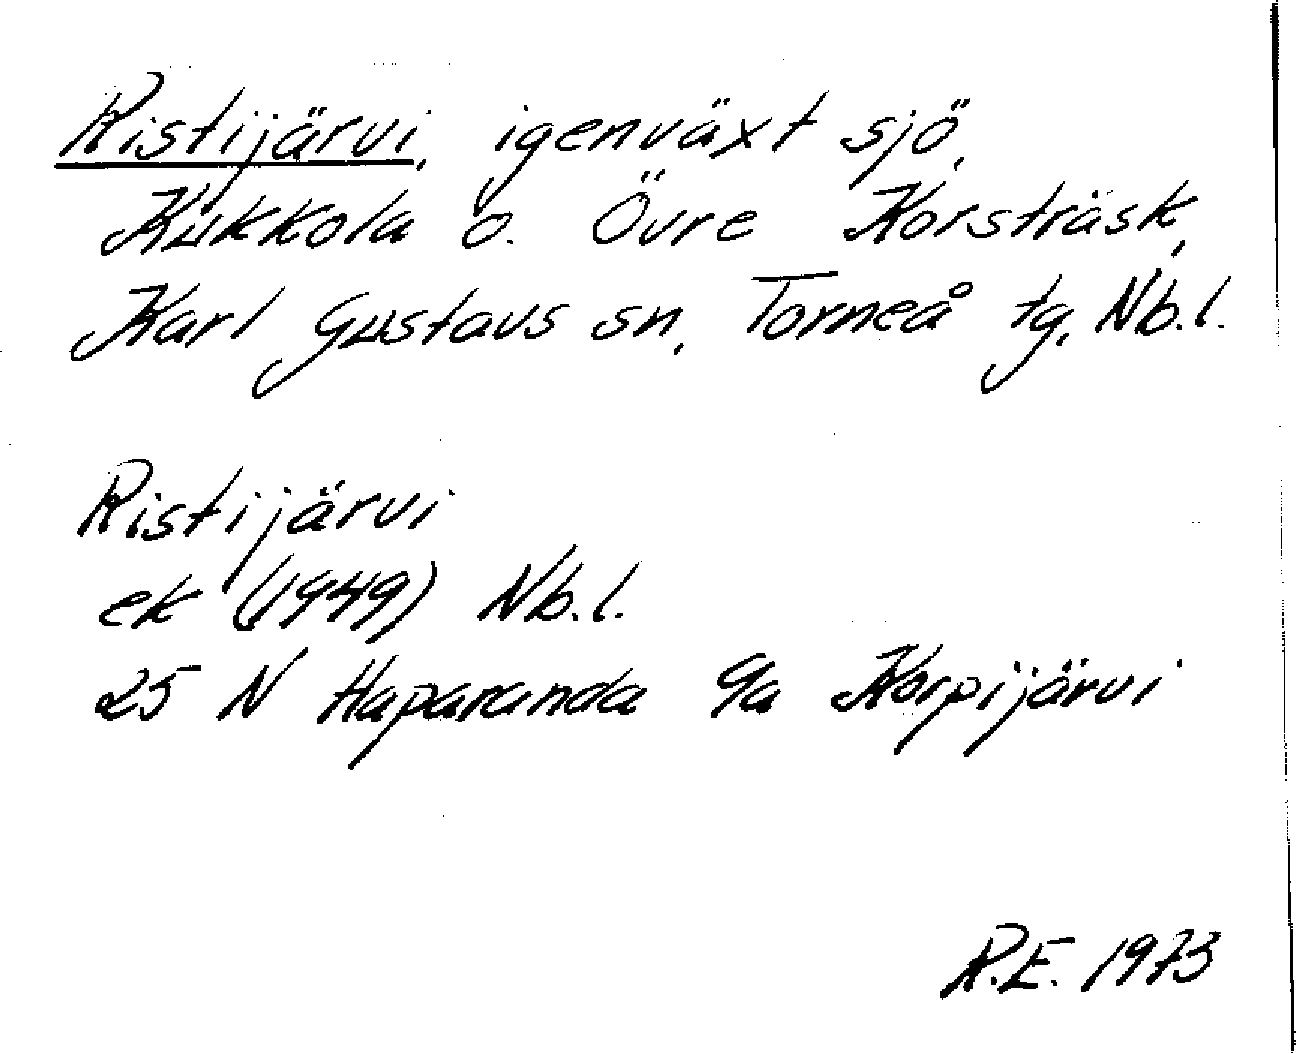 Ristijärvi, igenväxt sjö,
Kukkola o. Övre Korsträsk,
Karl Gustavs sn, Torneå tg, Nb.l.
Ristijärvi
ek (1949) Nb.l.
25 N Haparanda 9a Korpijärvi
R.E. 1973